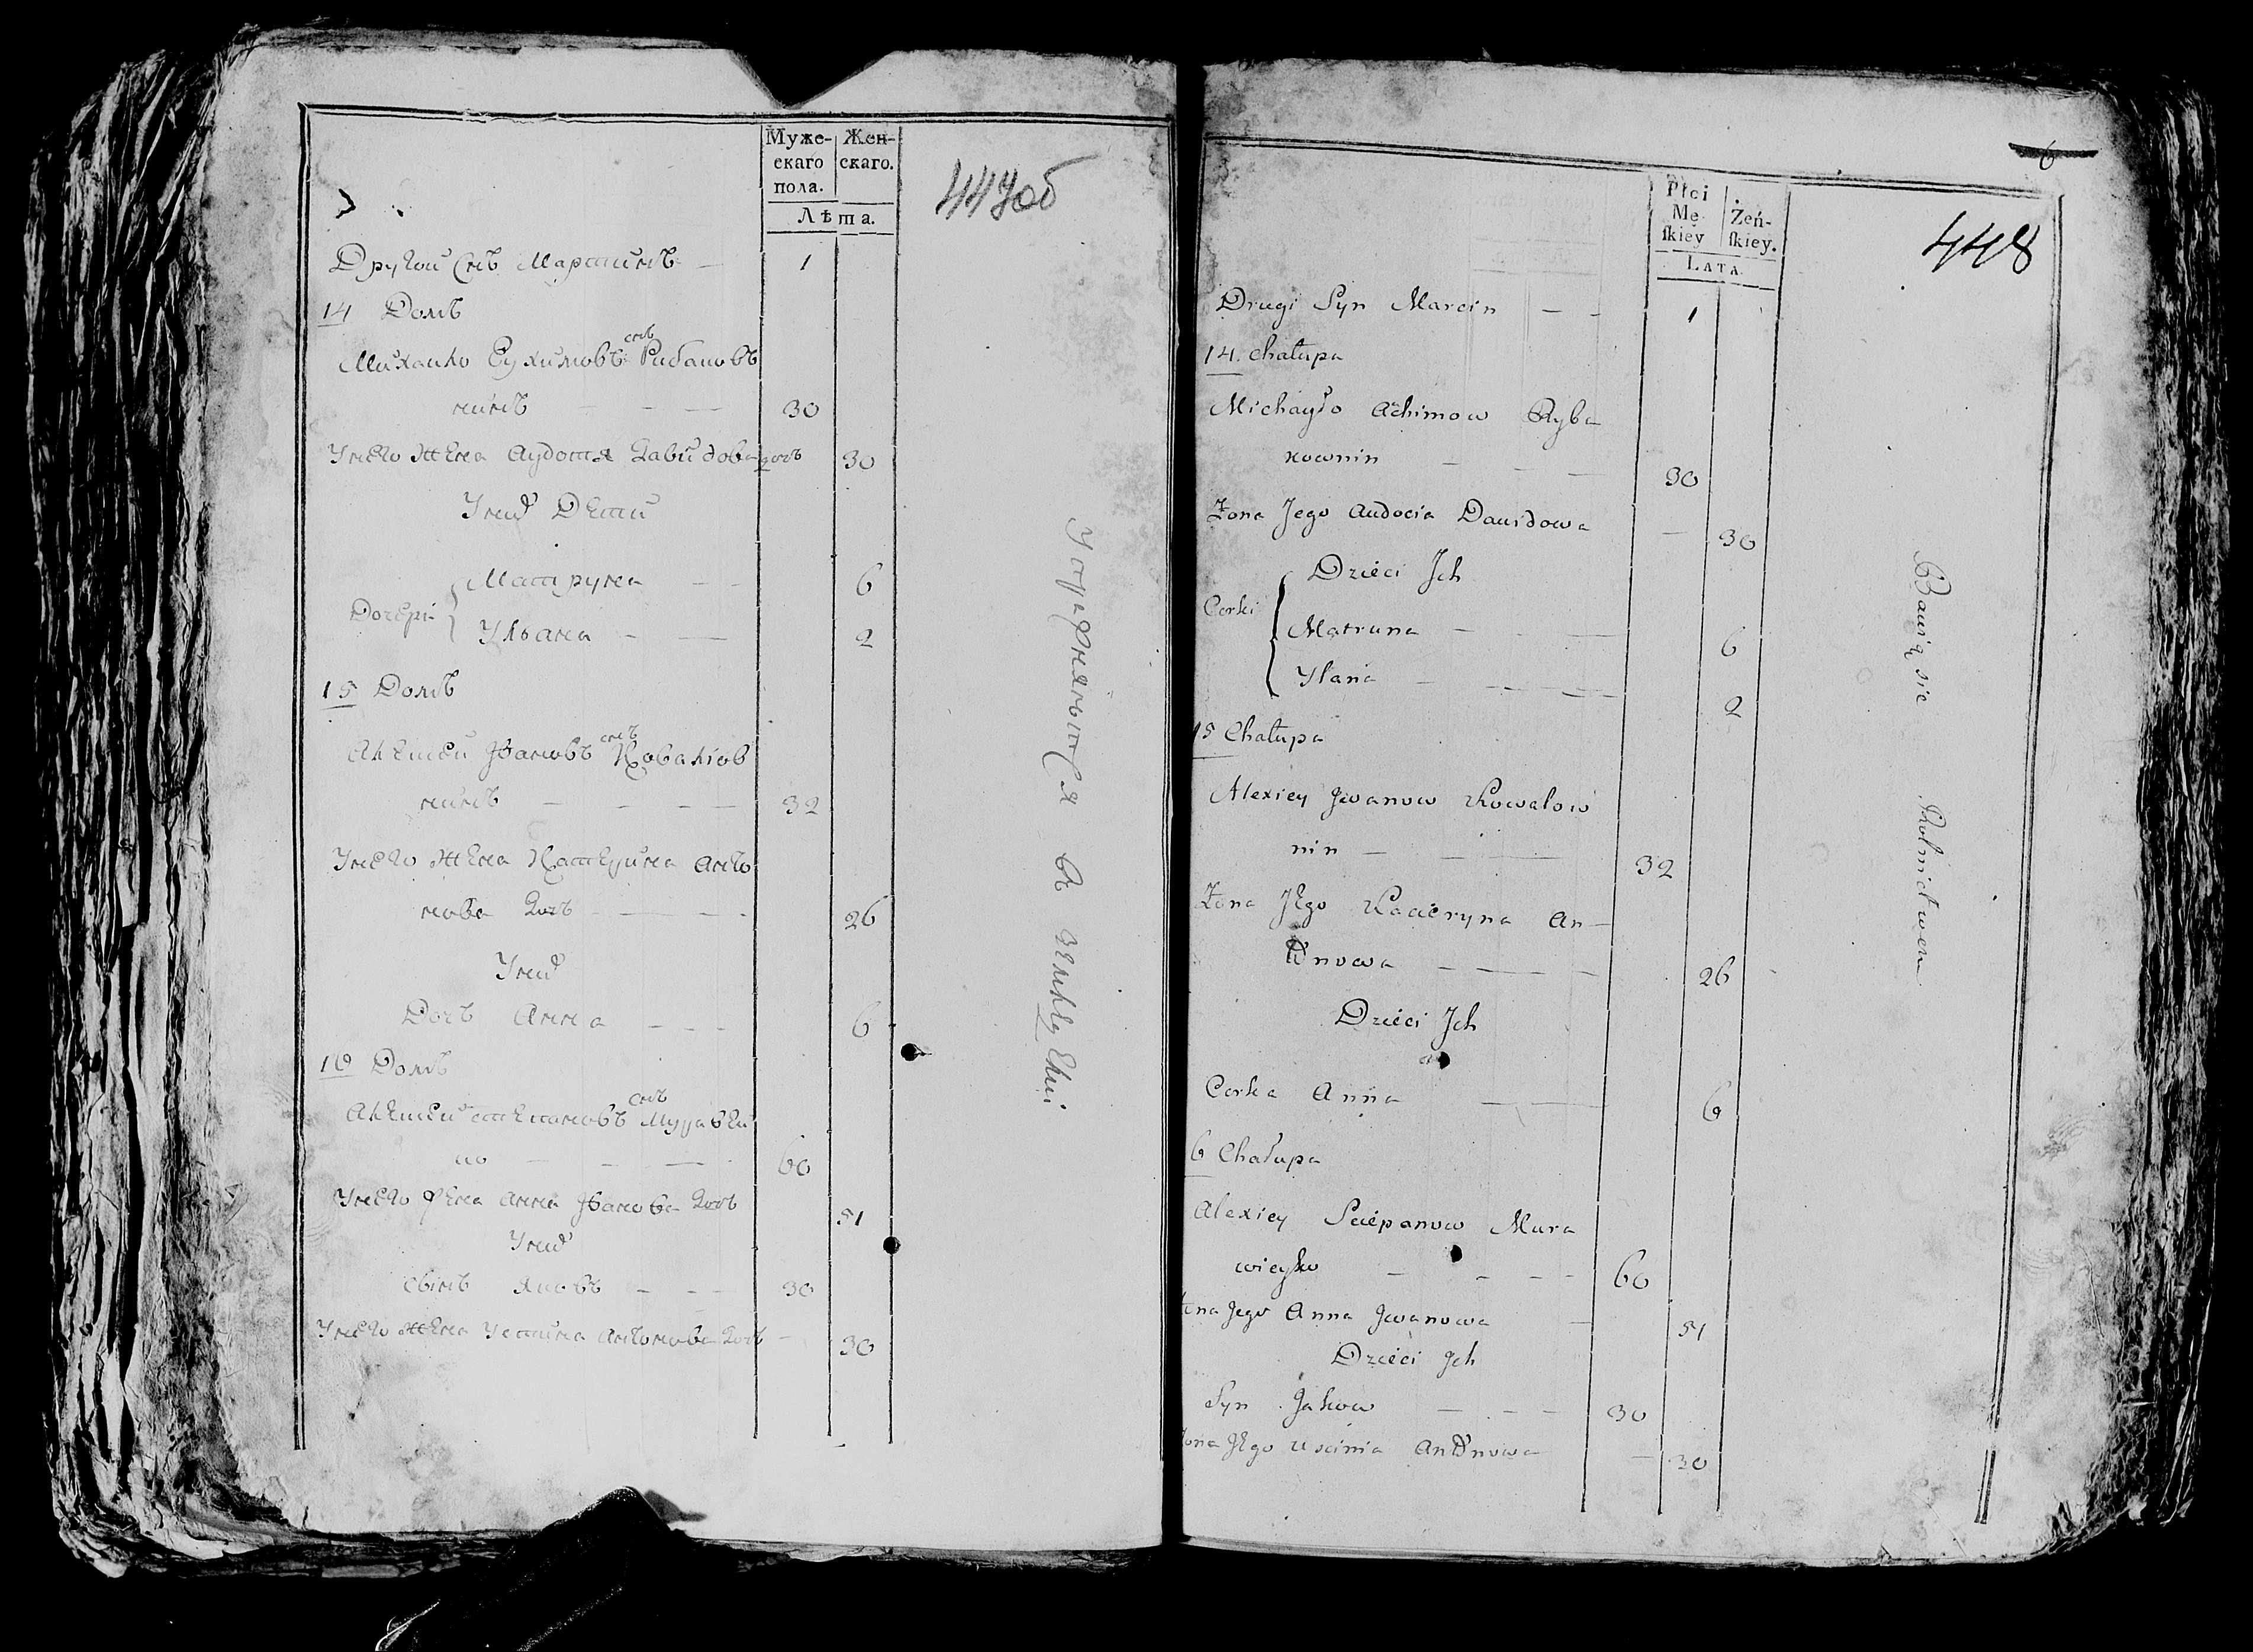 Муже-
скаго
пола.
Жен-
скаго.
Лѣта.
447об
Другой Снъ Мартинъ — 1
14 Домъ
снъ
Михайло Еухимовъ Рибаковъ
нинъ — — — 30
Унего Жена Аудотя Давидова дочъ 30
Уних Дети
Дочери
Матруна — — 6
Ульана — — 2
15 Домъ
снъ
Алексей Јвановъ Ковалiов
нинъ — — — 32
Унего Жена Катерина Анто
нова Дочъ — — 26
Уних
Дочъ Анна — — — 6
16 Домъ
снъ
Алексей Степановъ Муравей
ко — — — 60
Унего Жена Анна Јванова Дочъ 51
Уних
Сынъ Яковъ — — — 30
Унего Жена Устина Антонова Дочъ — 30
Упражняютса в земледелии
6
Płci
Mę-
ſkiey
Żeń-
ſkiey.
LATA
448
Drugi Syn Marcin — — 1
14. Chałupa
Michayło Achimow Ryba
kownin — — — 30
Żona Jego Audocia Dawidowa — 30
Dzieci Jch
Corki
Matruna — — 6
Ylana — — — 2
15 Chałupa
Alexiey Jwanow Kowalow
nin — — — 32
Żona Jego Kacieryna An—
tonowa — — — — 26
Dzieci Jch
Corka Anna — — 6
6 Chałupa
Alexiey Sciepanow Mura
wieyko — — — — 60
ona Jego Anna Jwanowa — 51
Dzieci Jch
Syn Jakow — — — 30
ona Jego Uscinia Antonowa — 30
Bawią sie Rolnictwem